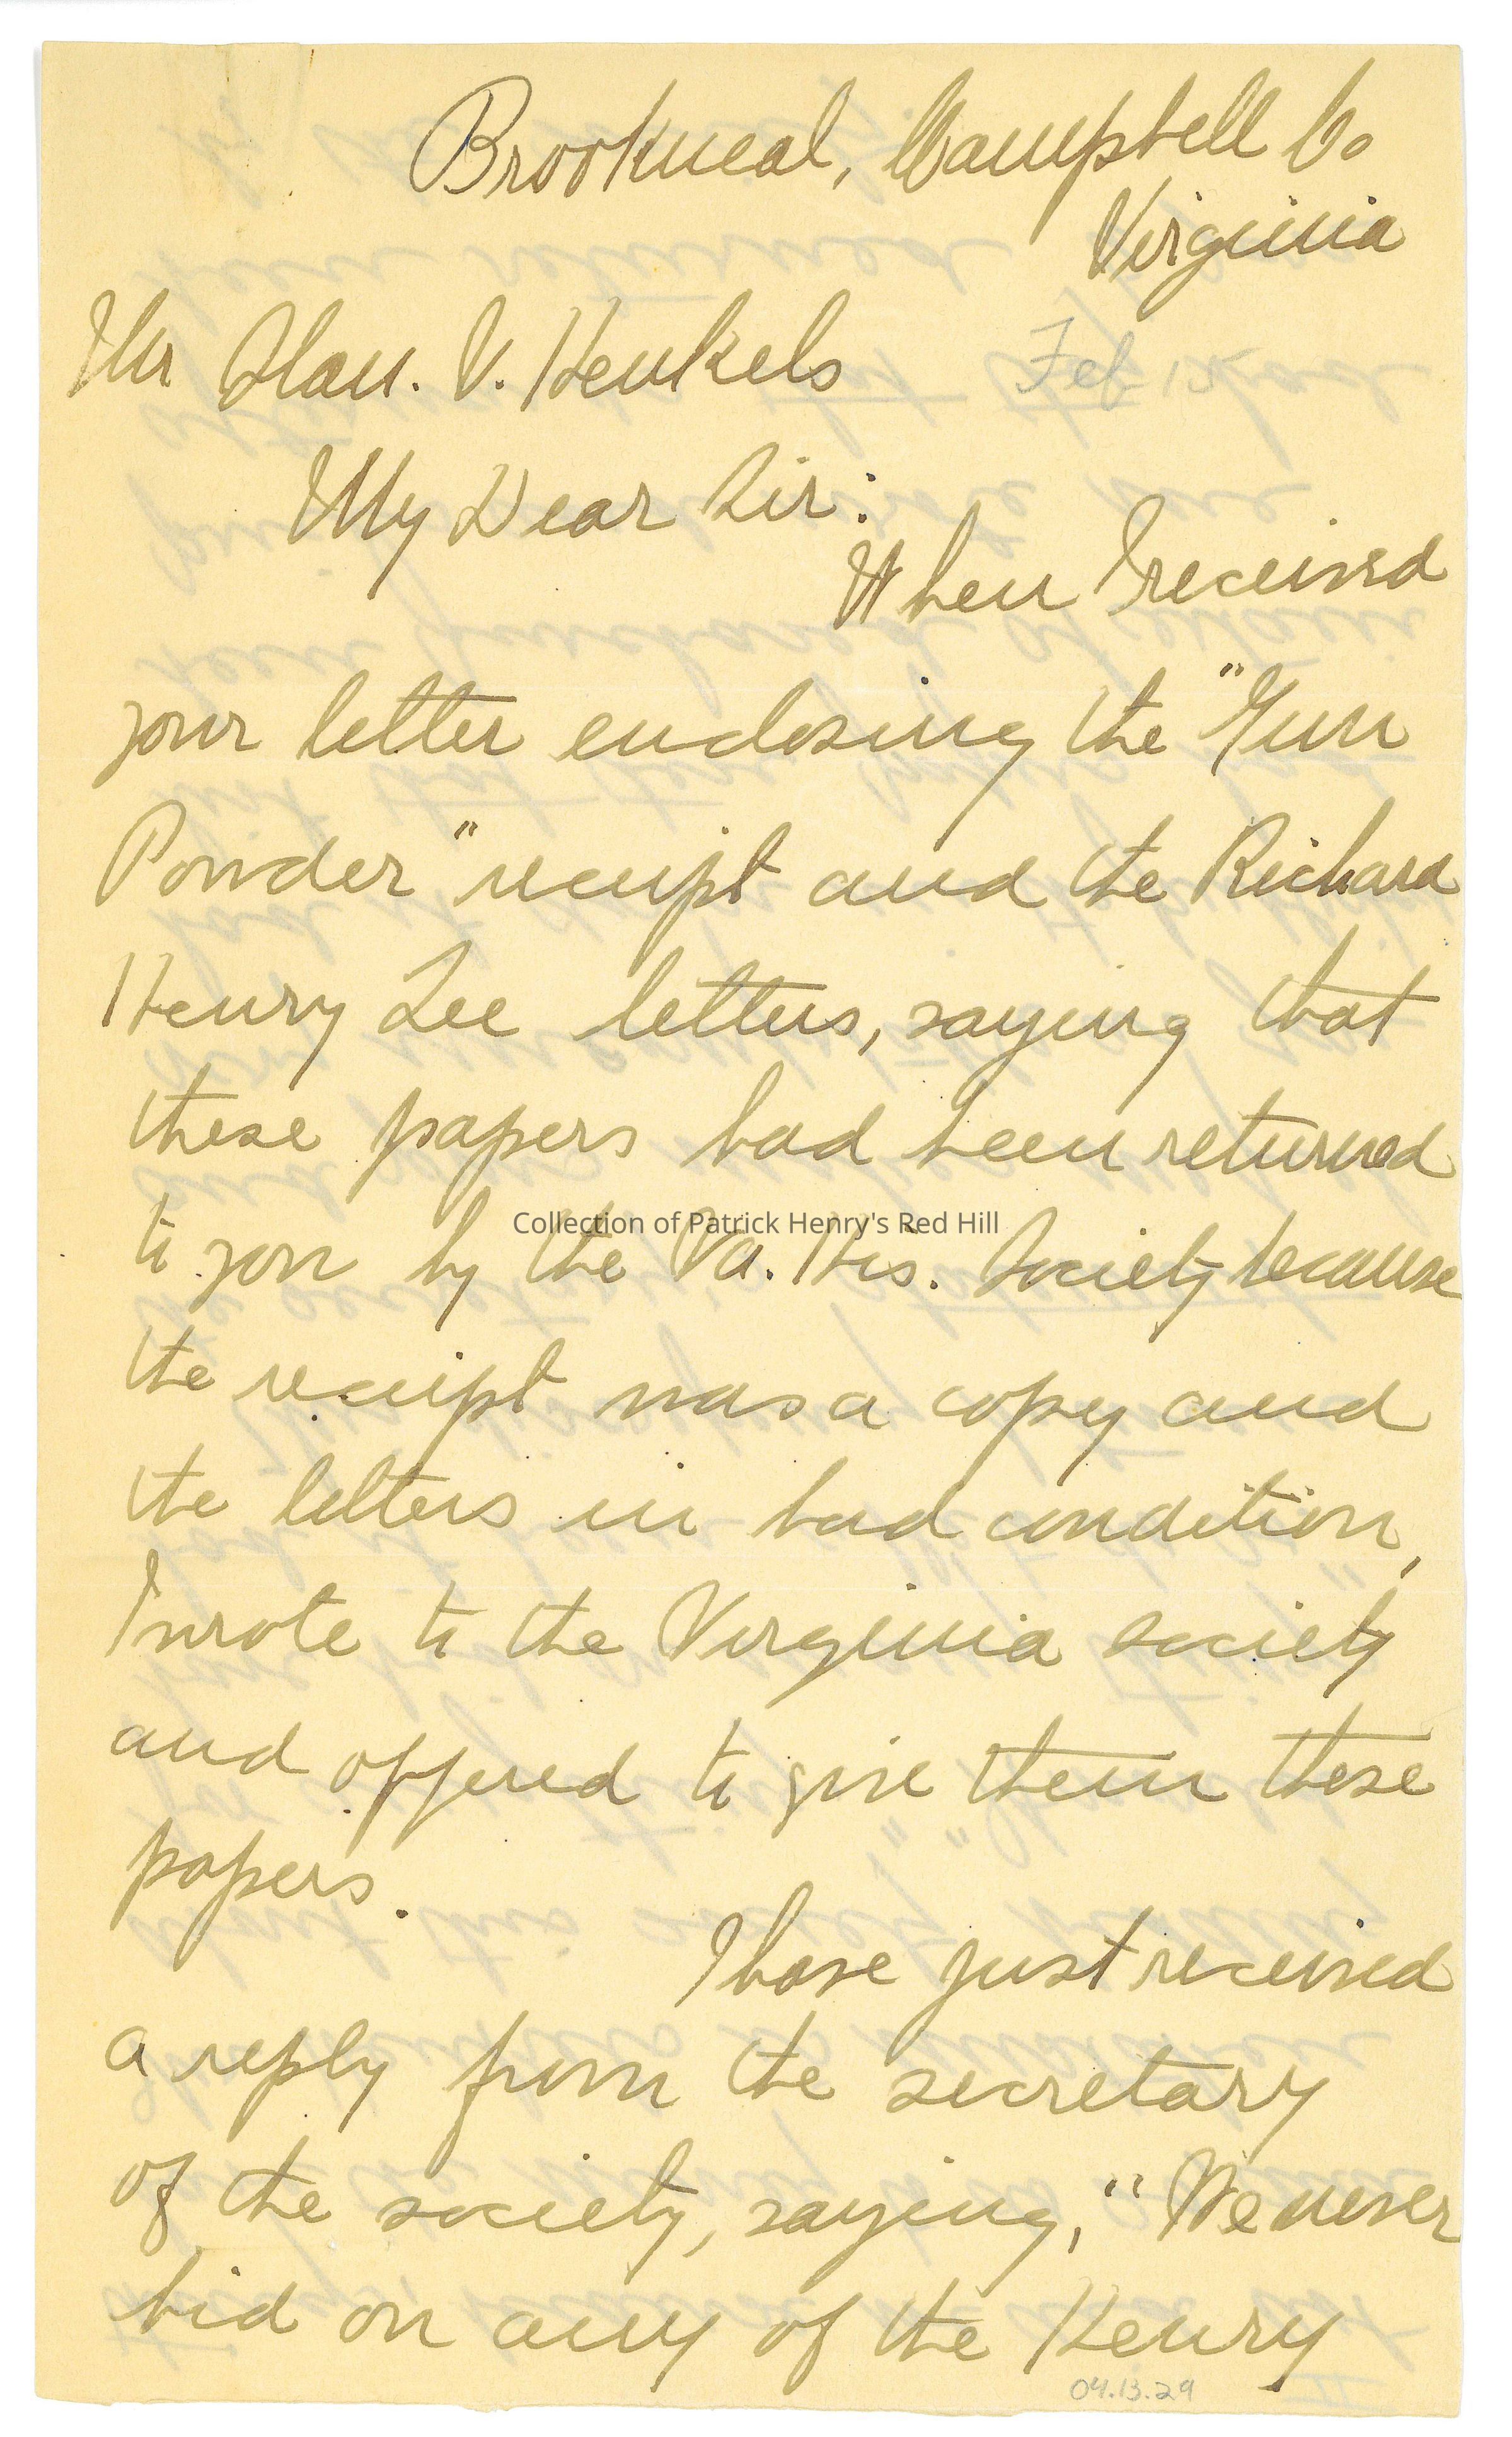 Brookneal, Campbell Co
Virginia
Mr Stan. V. Henkels
Feb 15
My Dear Sir:
When I received
your letter enclosing the "Gun
Powder" receipt and the Richard
Henry Lee letters, saying that
these papers had been returned
to you by the Va. His. Society because
the receipt was a copy and
the letters in bad condition,
I wrote to the Virginia society
and offered to give them these
papers.
I have just received
a reply from the secretary
of the society, saying, "We never
bid on any of the Henry
04.13.29
Collection of Patrick Henry's Red Hill